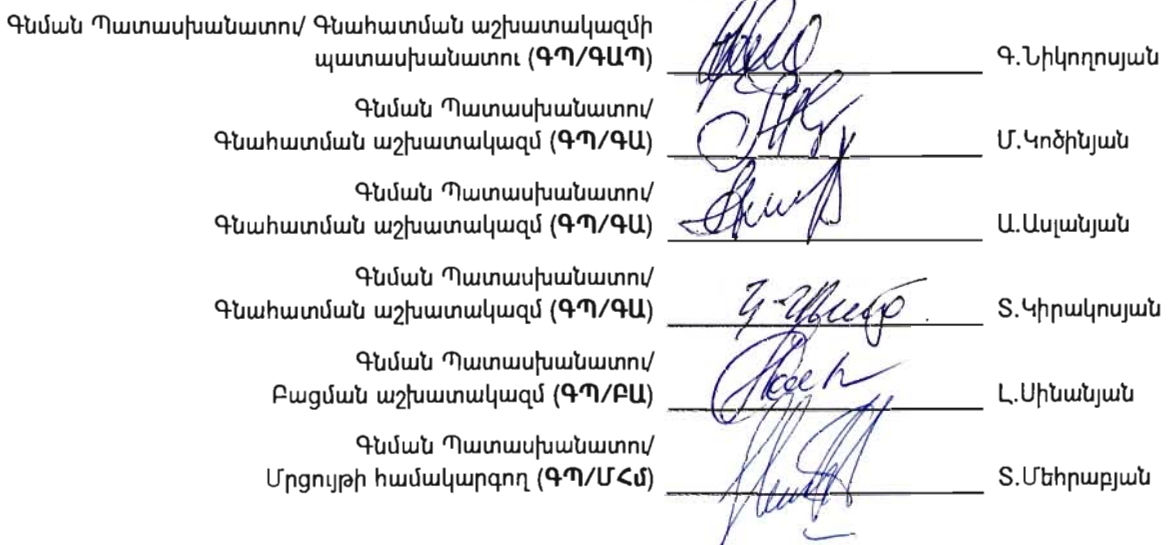 Գնման Պատասխանատու/ Գնահատման աշխատակազմի
պատասխանատու (ԳՊ/ԳԱՊ) Գ.Նիկողոսյան
Գնման Պատասխանատու/
Գնահատման աշխատակազմ (ԳՊ/ԳԱ) Մ.Կոծինյան
Գնման Պատասխանատու/
Գնահատման աշխատակազմ (ԳՊ/ԳԱ) Ա.Ասլանյան
Գնման Պատասխանատու/
Գնահատման աշխատակազմ (ԳՊ/ԳԱ) Տ.Կիրակոսյան
Գնման Պատասխանատու/
Բացման աշխատակազմ (ԳՊ/ԲԱ) Լ.Սինանյան
Գնման Պատասխանատու/
Մրցույթի համակարգող (ԳՊ/ՄՀմ) Տ.Մեհրաբյան